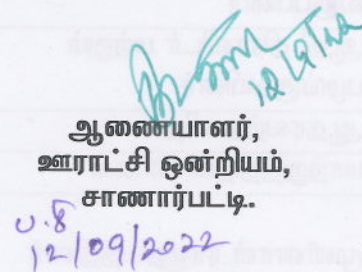 12/9/22
ஆணையாளர்,
ஊராட்சி ஒன்றியம்,
சாணார்பட்டி.
ப.சி
12/09/2022